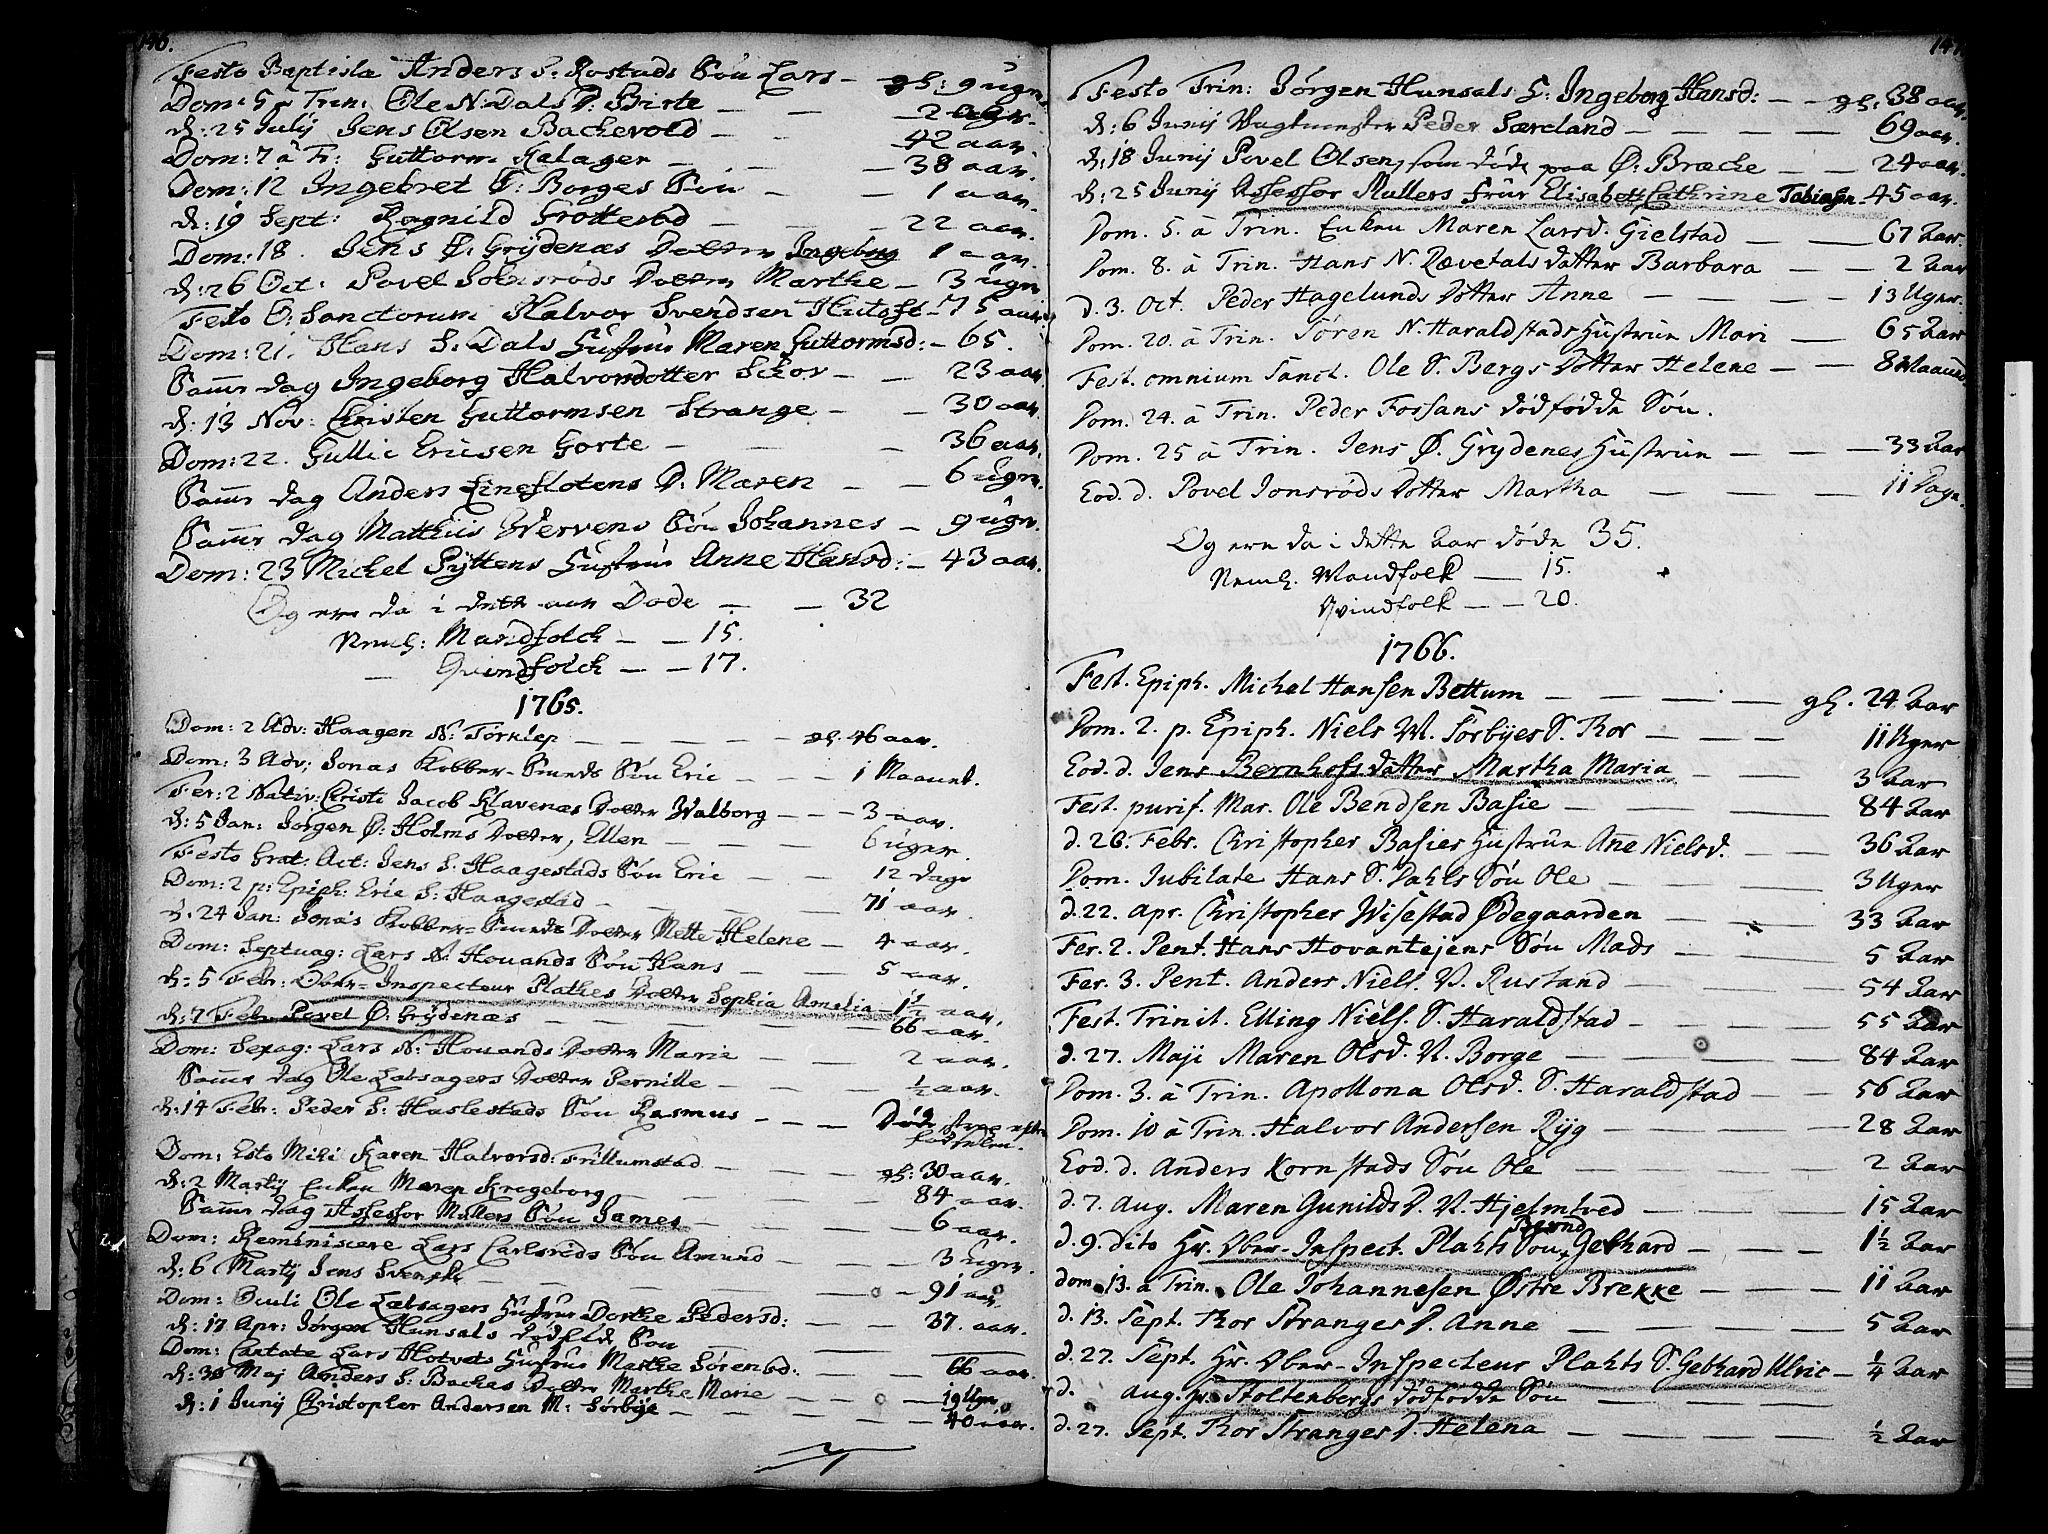 146.
Festo Baptistæ Anders S: Rostads Søn Lars — gl: 9 ugr.
Dom: 5 à Trin: Ole N: Dals D: Birte — — 2 dage.
d: 25 Julij Jens Olsen Backevold — — 42 aar.
Dom: 7 à Tr: Guttorm Kalager — — 38 aar.
Dom: 12 Ingebret Ø: Borges Søn — — 1 aar.
d: 19 Sept: Ragnild Grottestad — — 22 aar.
Dom: 18. Jens Ø: Grydenæs Dotter Ingeborg 1 aar.
d: 26 Oct: Povel Solesrøds Dotter Marthe — 3 ugr
Festo O: Sanctorum Halvor Svendsen — 75 aar
Dom: 21. Hans S: Dals Hustrue Maren Guttormsd: — 65.
Samme dag Ingeborg Halvorsdotter Schov — — 23 aar.
d: 13 Nov: Christen Guttormsen Strange — — 30 aar.
Dom: 22. Gullic Ericsen Gorte — — 36 aar.
Samme dag Anders Lineslotens D: Maren — — 6 ugr.
Samme dag Matthiis Wervens Søn Johannes — 9 ugr.
Dom: 23 Michel Pyttens Hustrue Anne Hansd: — 43 aar.
Og ere da i dette aar Døde — — 32
Neml: Mandfolch — — 15.
— Qvindfolch — — 17.
1765.
Dom: 2 Adv: Haagen N: Torklep — — — gl. 46 aar.
Dom: 3 Adv: Jonas Kobber-Smeds Søn Eric — — — 1 Maanet.
Fer: 2 Nativ: Christi Jacob Klavenæs Dotter Walborg — — — 3 aar.
d: 5 Jan: Jørgen Ø: Holms Dotter, Ellen — — — 6 uger.
Festo Grat: Act: Jens S: Haagestads Søn Eric — — 12 Dage
Dom: 2 p: Epiph: Eric S: Haagestad — — — 71 aar.
d. 24 Jan: Jonas Kobber-Smeds Dotter Mette Helene — 4 aar.
Dom: Septuag: Lars N: Houands Søn Hans — — 5 aar.
d: 5 Febr: Ober-Inspecteur Plathes Dotter Sophia Amalia 1½ aar.
d: 7 Febr Povel Ø: Grydenæs — — — 66 aar.
Dom: Sexag: Lars N: Houands Dotter Marie — — 2 aar.
Samme dag Ole Labsagers Dotter Pernille — — ½ aar.
d: 14 Febr: Peder S: Haslestads Søn Rasmus — — — Døde strax efter fødselen.
Dom: Esto Mihi Karen Halvorsd: Frillumstad — — — gl: 30 aar.
d: 2 Martij Enken Maren Krageborg — — — 84 aar.
Samme dag Assessor Müllers Søn James — — — 6 aar.
Dom: Reminiscere Lars Carlsrøds Søn Amund — — 3 Ugr.
d: 6 Martij Jens Svenske — — — 91 aar.
Dom: Oculi Ole Labsagers Hustrue Dorthe Pedersd: — — 37. aar.
d: 17 Apr: Jørgen Hunsals dødfød Søn
Dom: Cantate Lars Hotvets Hustrue Marthe Sørensd. — — 66 aar.
d: 30 Maj Anders S: Baches Dotter Marthe Marie — — 19 Ugr.
d: 1 Junij Christopher Andersen M: Sørbye — — — 40 aar.
147
Festo Trin: Jørgen Hunsals H: Ingeborg Hansd: — — gl. 38 aar.
d: 6 Junij Vagtmester Peder Særeland — — — 69 aar.
d: 18 Junij Povel Olsen, som døde paa Ø: Bræcke — — 24 aar.
d: 25 Junij Assessor Mullers Frue Elisabeth Cathrine Tobiasen. 45 aar.
Dom. 5. à Trin. Enken Maren Larsd. Gielstad — — 67 Aar.
Dom. 8. à Trin. Hans N. Rævetals Datter Barbara — — 2 Aar
d. 3. Oct. Peder Hagelunds Dotter Anne — — — 13 Uger.
Dom. 20. à Trin. Søren N. Haraldstads Hustrue Mari — 65 Aar
Fest. omnium Sanct. Ole S. Bergs Dotter Helene — — 8 Maaned
Dom. 24. à Trin. Peder Fossans dødfødde Søn.
Dom. 25 à Trin. Jens Ø. Grydenes Hustrue — — — 33 Aar
Eod. d. Povel Jonsrøds Dotter Martha — — — 11 Dage.
Og ere da i dette Aar døde 35.
Neml. Mandfolk — 15.
Qvindfolk — — 20.
1766.
Fest. Epiph. Michel Hansen Bettum — — — gl. 24 Aar
Dom. 2. p. Epiph. Niels W. Sørbyes S. Thor — — — 11 Uger
Eod. d. Jens Bernhofs datter Martha Maria — — — 3 Aar
Fest. purif. Mar. Ole Bendsen Basie — — — 84 Aar
d. 26. Febr. Christopher Basies Hustrue Ane Nielsd. — — 36 Aar
Dom. Jubilate Hans S. Dahls Søn Ole — — — 3 Uger
d. 22. Apr. Christopher Wisestad Ødegaarden — — 33 Aar
Fer. 2. Pent. Hans Hovantejens Søn Mads — — — 5 Aar
Fer. 3. Pent. Anders Niels. V. Rustand — — — 54 Aar
Fest. Trinit. Elling Niels. S. Haraldstad — — — 55 Aar
d. 27. Maji Maren Olsd. N. Borge — — — 84 Aar
Dom. 3. à Trin. Apollona Olsd. S. Haraldstad — — 56 Aar
Dom. 10 à Trin. Halvor Andersen Ryg — — — 28 Aar
Eod. d. Anders Kornstads Søn Ole — — — 2 Aar
d. 7. Aug. Maren Gunilds D. N. Hjelmtved — — — 15 Aar
d. 9. dito Hr. Ober-Inspect. Plahts Søn Bernd Gebhard — — — 1½ Aar
dom. 13. à Trin. Ole Johannesen Østre Brekke — — — 11 Aar
d. 13. Sept. Thor Stranges D. Anne — — — 5 Aar
d. 27. Sept. Hr. Ober-Inspecteur Plahts S. Gebhard Ulric — ¼ Aar
d. Aug. Hr. Stoltenbergs dødfødde Søn — — —
d. 27. Sept. Thor Stranges D. Helena — — — ½ Aar